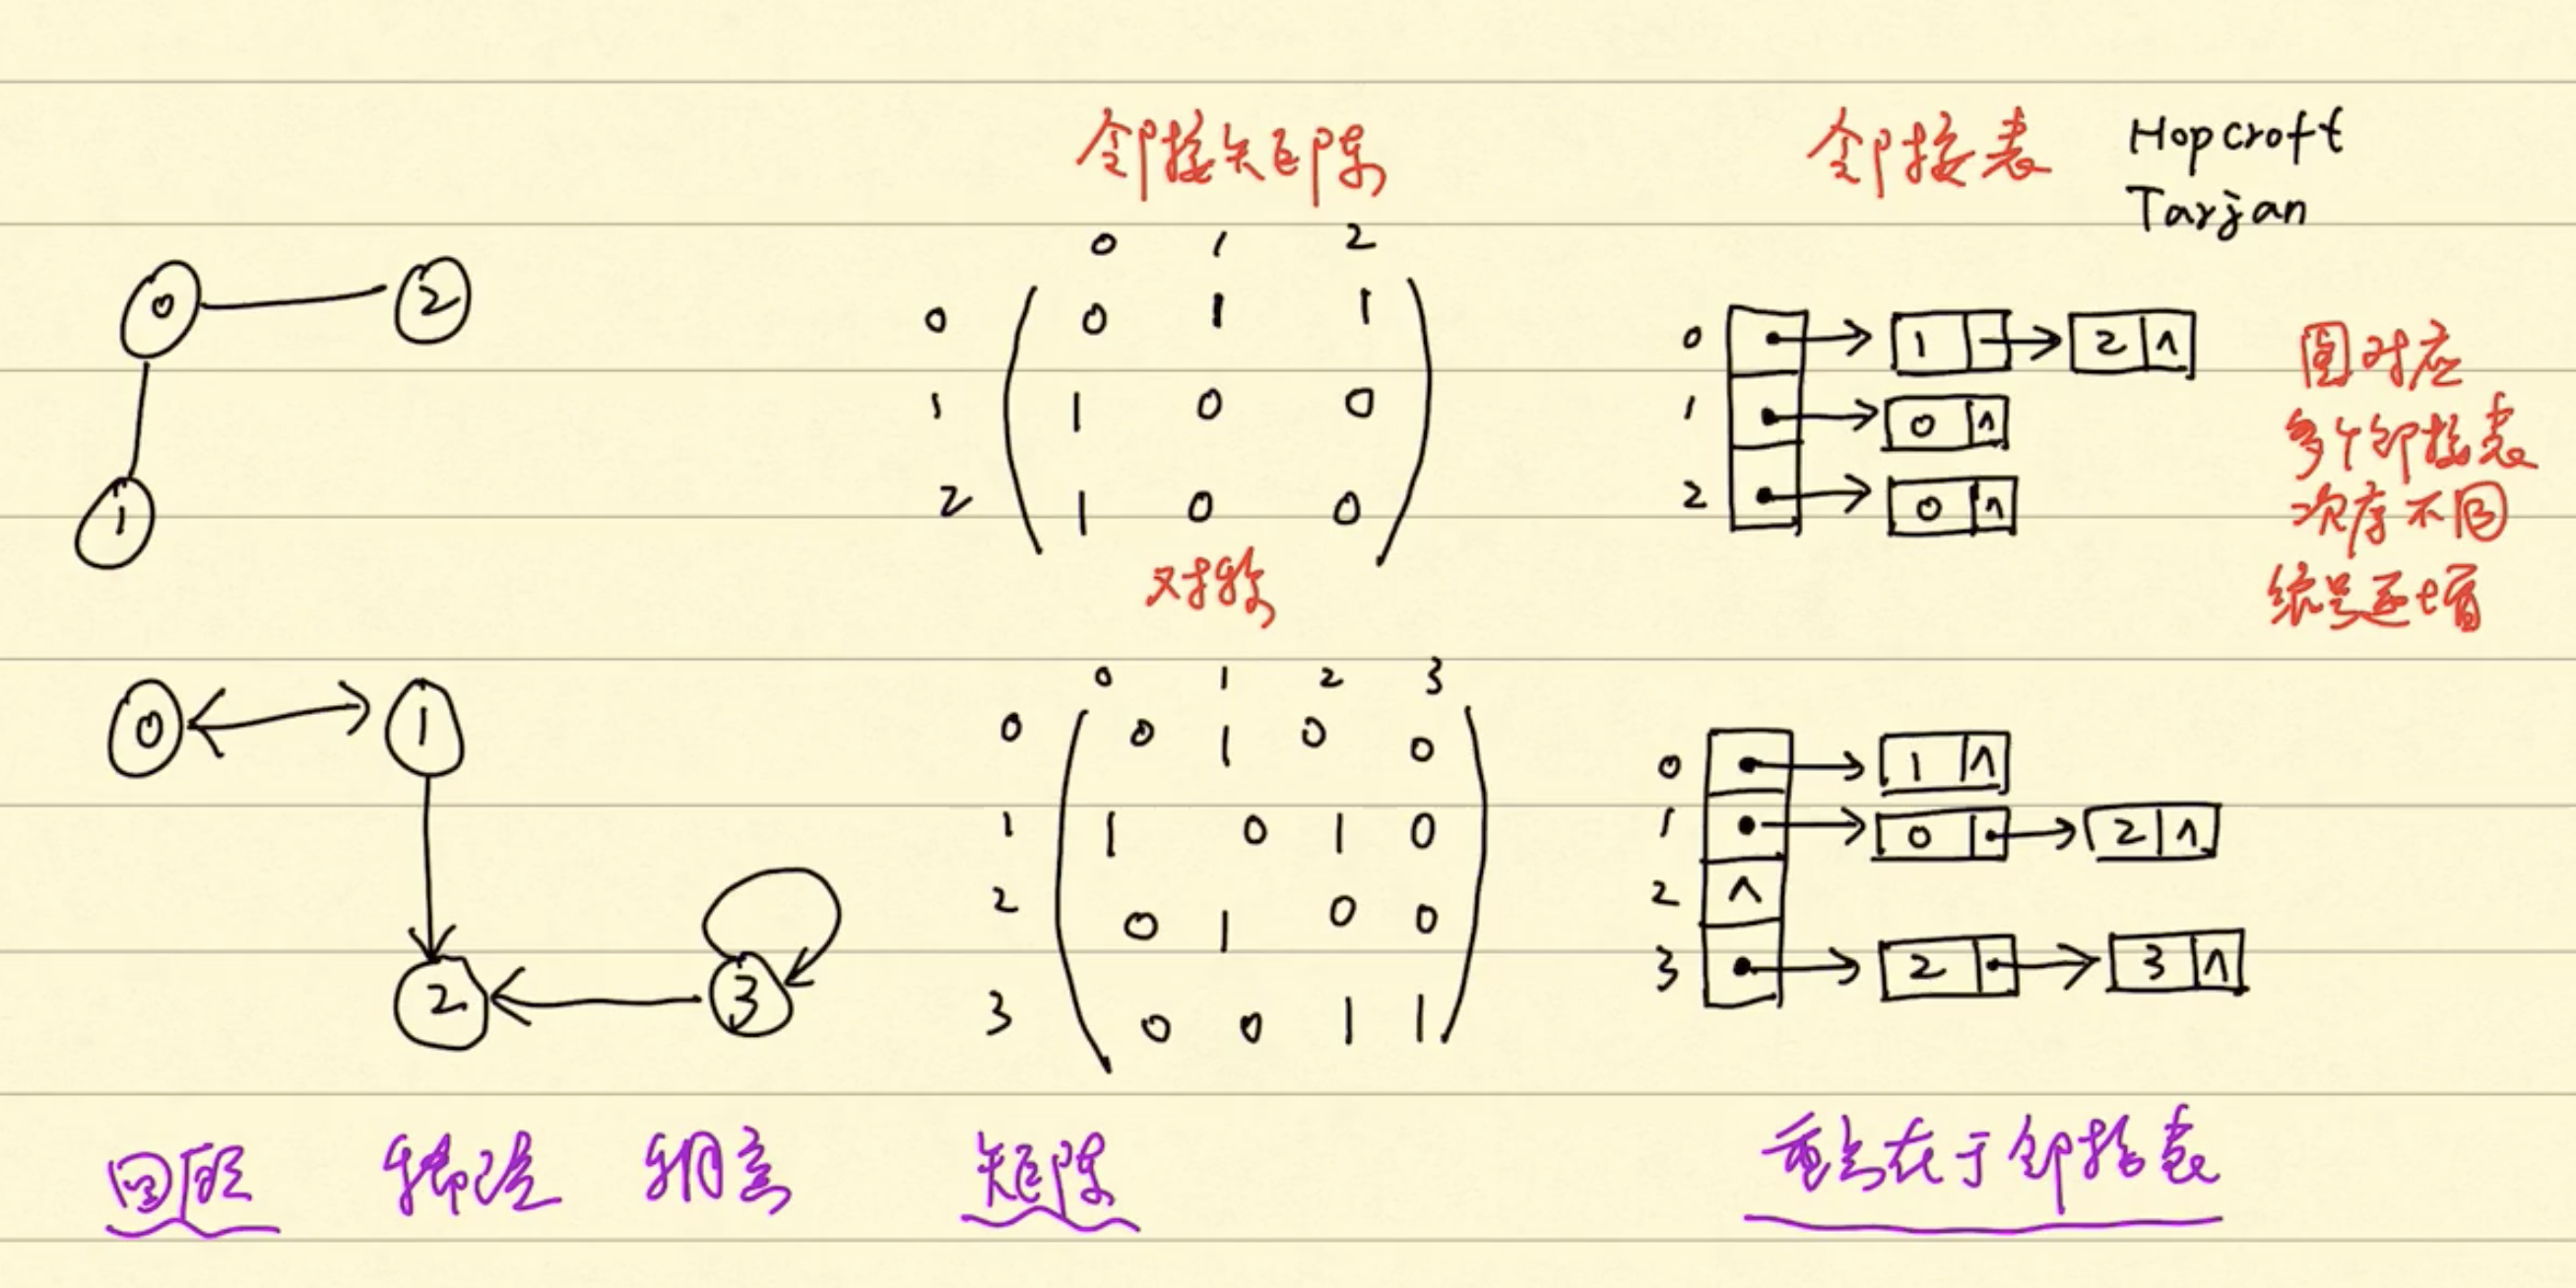 邻接矩阵
邻接表 Hopcroft
Tarjan
0 1 2
0 0 1 1
1 1 0 0
2 1 0 0
对称
0 2
1
0 1 2 ∧
1 0 ∧
2 0 ∧
图对应
多个邻接表
次序不同
编号递增
0 1
2 3
0 1 2 3
0 0 1 0 0
1 1 0 1 0
2 0 1 0 0
3 0 0 1 1
0 1 ∧
1 0 2 ∧
2 ∧
3 2 3 ∧
回顾 稀疏 稠密 矩阵 重点在于邻接表